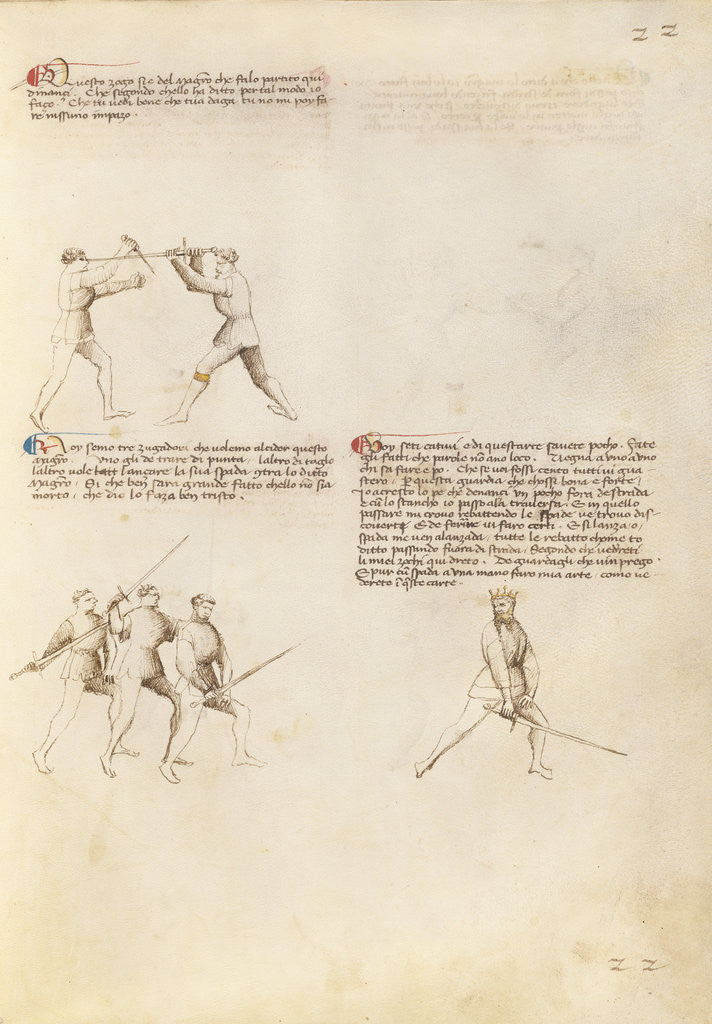 22
Questo zogo si e del Magro che fa lo partito qui
dinanci. Che segondo chello ha ditto per tal modo io
faço. Che tu vedi bene che tua daga tu no mi poy fa-
re nissuno impazo.
Noy semo tre zugadori che volemo alcider questo
Magro. Uno gli de trare di punta, laltro di taglio
laltro vole lançare la sua spada contra lo ditto
Magro. Si che ben sara grande fatto chello no sia
morto, che dio lo faza ben tristo.
Voy seti cativi e di questarte savete pocho. Fate
gli fatti che parole no ano loco. Vegna a uno a uno
chi sa fare e po. Che se voi fossi cento tutti vi gua-
stero, per questa guardia che chossi bona e forte,
Io acresto lo pe che denanci un pocho fora de strada
e cum lo stancho io passo ala traversa. E in quello
passare mi crovo rebattendo le spade ve trovo dis-
coverti E de ferire vi faro certi. E si lanza o
spada me ven alanzada, tutte le rebatto chome to
ditto passando fuora di strada, segondo che vedreti
li miei zochi qui dreto. De guardagli che vin prego.
E pur cum spada a una mano faro mia arte, como ve
dereto in queste carte.
22